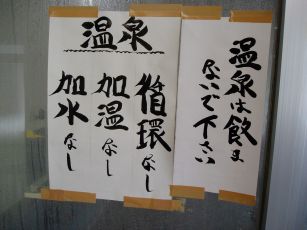 温泉は飲ま
ないで下さい
温泉
循環なし
加温なし
加水なし